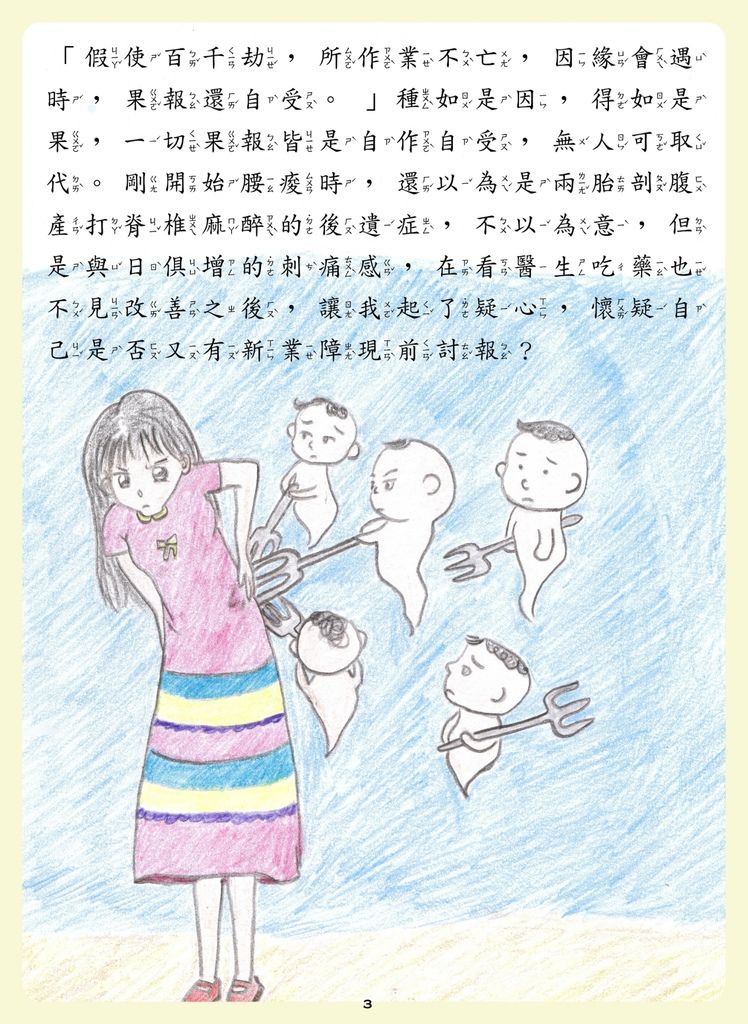 「假使百千劫，所作業不亡，因緣會遇
時，果報還自受。」種如是因，得如是
果，一切果報皆是自作自受，無人可取
代。剛開始腰痠時，還以為是兩胎剖腹
產打脊椎麻醉的後遺症，不以為意，但
是與日俱增的刺痛感，在看醫生吃藥也
不見改善之後，讓我起了疑心，懷疑自
己是否又有新業障現前討報？
3